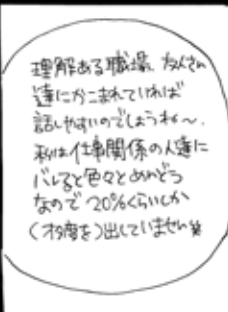 理解ある職場、友人さん
達にかこまれていれば
話しやすいのでしょうね〜。
私は仕事関係の人達に
バレると色々とめんどう
なので20%くらいしか
(オタ度を)出していません